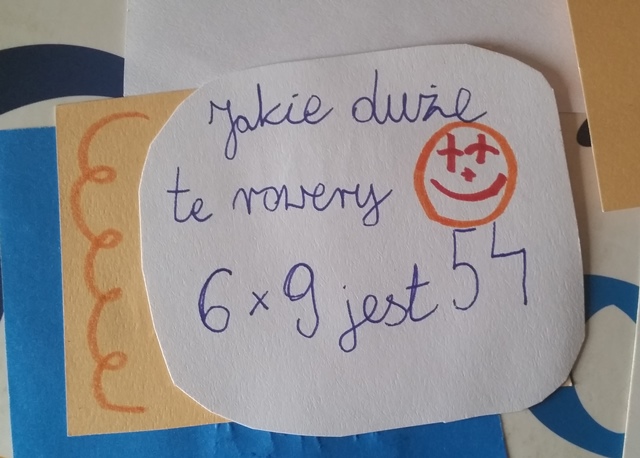 Jakie duże
te rowery
6 × 9 jest 54